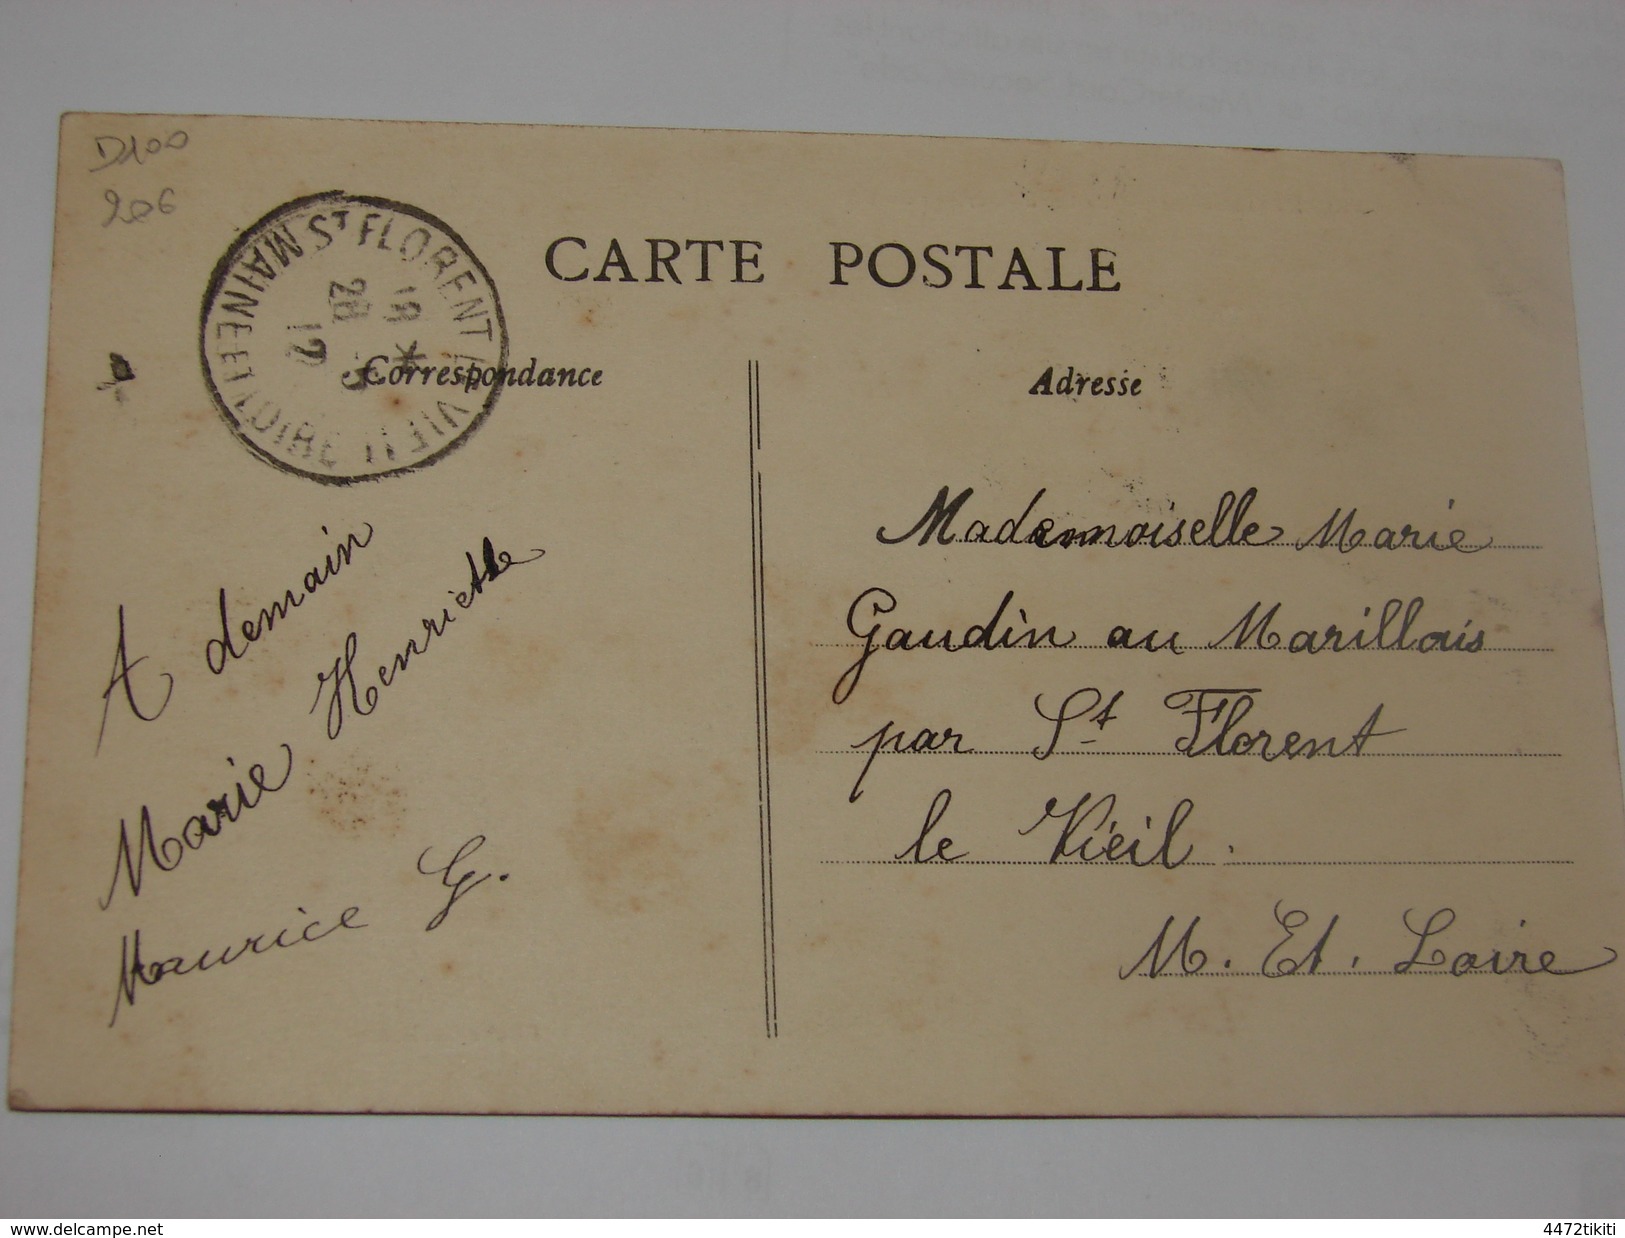 D100
206
ST FLORENT LE VIEIL
MAINE ET LOIRE
28
12
CARTE POSTALE
Correspondance
Adresse
A demain
Marie Henriette
Maurice G.
Mademoiselle Marie
Gaudin au Marillais
par St Florent
le Vieil.
M. Et. Loire
www.delcampe.net
4472tikiti